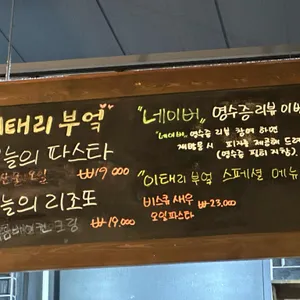 이태리 부엌
오늘의 파스타
오일 ₩19,000
오늘의 리조또
크림 ₩19,000
"네이버" 영수증 리뷰 이벤
"네이버" 영수증 리뷰 참여 하면
재방문시
(영수증 필히 지참)
"이태리 부엌 스페셜 메뉴
비스큐 새우 ₩23,000
오일파스타